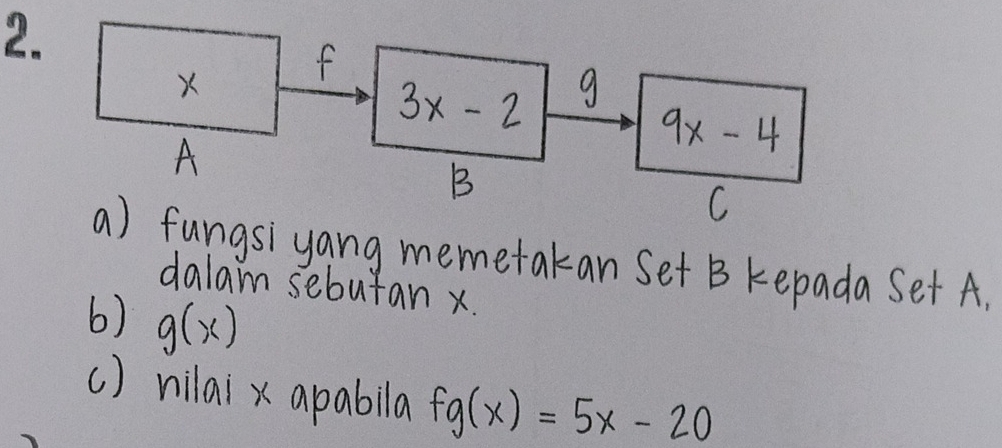 2.
x
f
3x - 2
g
9x - 4
A
B
C
a) fungsi yang memetakan Set B kepada Set A,
dalam sebutan x.
b) g(x)
c) nilai x apabila fg(x) = 5x - 20